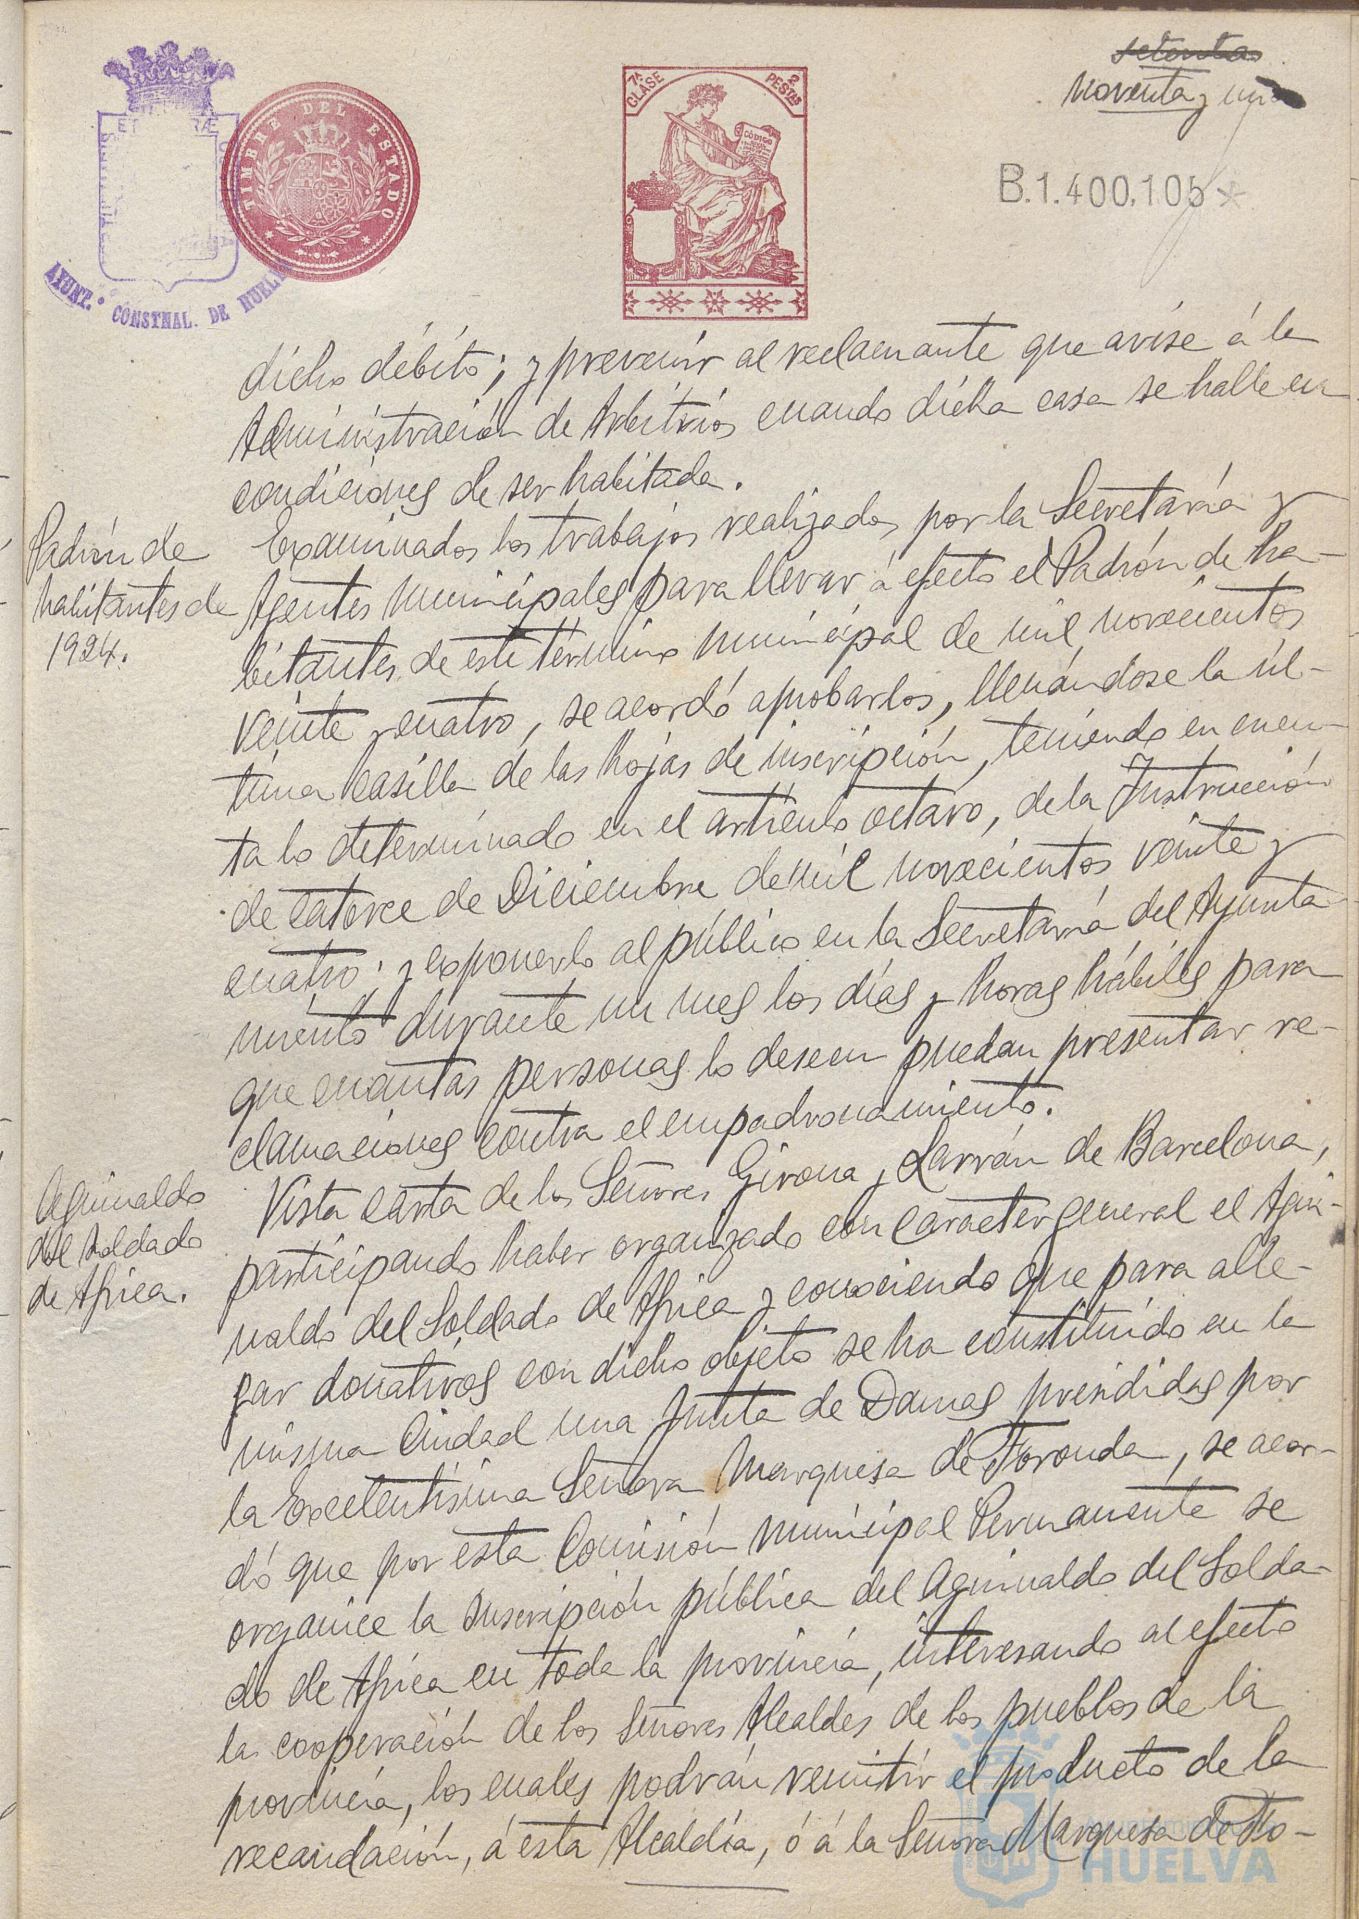 setenta
noventa y uno
7ª CLASE
2 PESTAS
CÓDIGO
TIMBRE DEL ESTADO
B.1.400.105
AYUNT. CONSTNAL. DE HUELVA
dicho débito; y prevenir al reclamante que avise á la
Administración de Arbitrios cuando dicha casa se halle en
condiciones de ser habitada.
Padrón de
habitantes de
1924.
Examinados los trabajos realizados por la Secretaría y
Agentes municipales para llevar á efecto el Padrón de ha-
bitantes de este término municipal de mil novecientos
veinte y cuatro, se acordó aprobarlos, llenándose la úl-
tima casilla de las hojas de inscripción, teniendo en cuen-
ta lo determinado en el artículo octavo, de la Instrucción
de catorce de Diciembre de mil novecientos veinte y
cuatro; y exponerlo al público en la Secretaría del Ayunta-
miento durante un mes los días y horas hábiles para
que cuantas personas lo deseen puedan presentar re-
clamaciones contra el empadronamiento.
Aguinaldo
del Soldado
de Africa.
Vista carta de los Señores Girona y Larrán de Barcelona,
participando haber organizado con caracter general el Agui-
naldo del Soldado de Africa y conociendo que para alle-
gar donativos con dicho objeto se ha constituído en la
misma Ciudad una Junta de Damas presididas por
la Excelentísima Señora Marquesa de Foronda, se acor-
dó que por esta Comisión municipal Permanente se
organice la suscripción pública del Aguinaldo del Solda-
do de Africa en toda la provincia, interesando al efecto
la cooperación de los Señores Alcaldes de los pueblos de la
provincia, los cuales podrán remitir el producto de la
recaudación, á esta Alcaldía, ó á la Señora Marquesa de Fo-
HUELVA